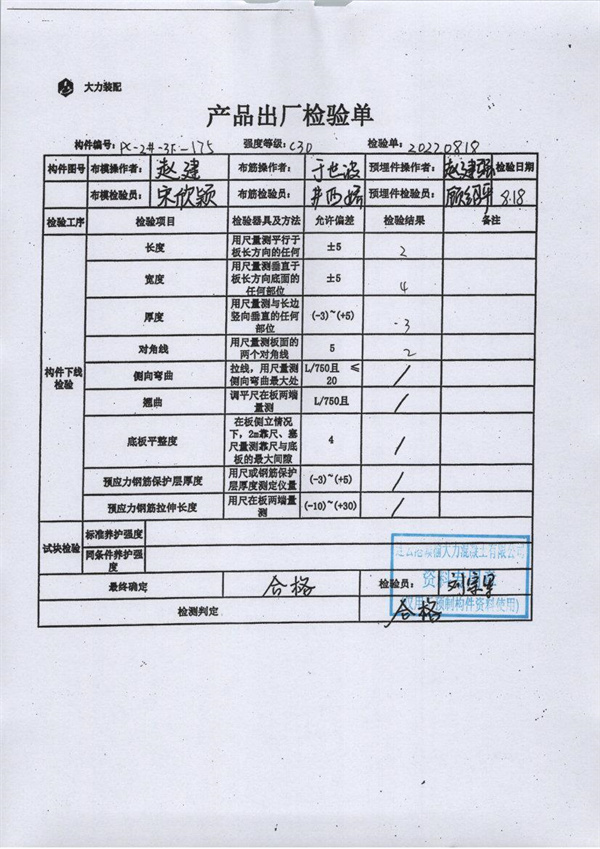 大力装配
产品出厂检验单
构件编号: PC-2#-3F-175 强度等级: C30 检验单: 20220818
构件图号 布模操作者: 赵建 布筋操作者: 于世波 预埋件操作者: 赵建强 检验日期
布模检验员: 宋欣颖 布筋检验员: 预埋件检验员: 8.18
检验工序 检验项目 检验器具及方法 允许偏差 检验结果 备注
构件下线检验
长度 用尺量测平行于板长方向的任何 ±5 2
宽度 用尺量测垂直于板长方向底面的任何部位 ±5 4
厚度 用尺量测与长边竖向垂直的任何部位 (-3)~(+5) -3
对角线 用尺量测板面的两个对角线 5 2
侧向弯曲 拉线，用尺量测侧向弯曲最大处 L/750且 ≤20 /
翘曲 调平尺在板两端量测 L/750且 /
底板平整度 在板侧立情况下，2m靠尺、塞尺量测靠尺与底板的最大间隙 4 /
预应力钢筋保护层厚度 用尺或钢筋保护层厚度测定仪量 (-3)~(+5) /
预应力钢筋拉伸长度 用尺在板两端量测 (-10)~(+30) /
试块检验 标准养护强度
同条件养护强度
最终确定 合格 检验员:
检测判定 合格
大力混凝土有限公司
资料专用章
预制构件资料使用)